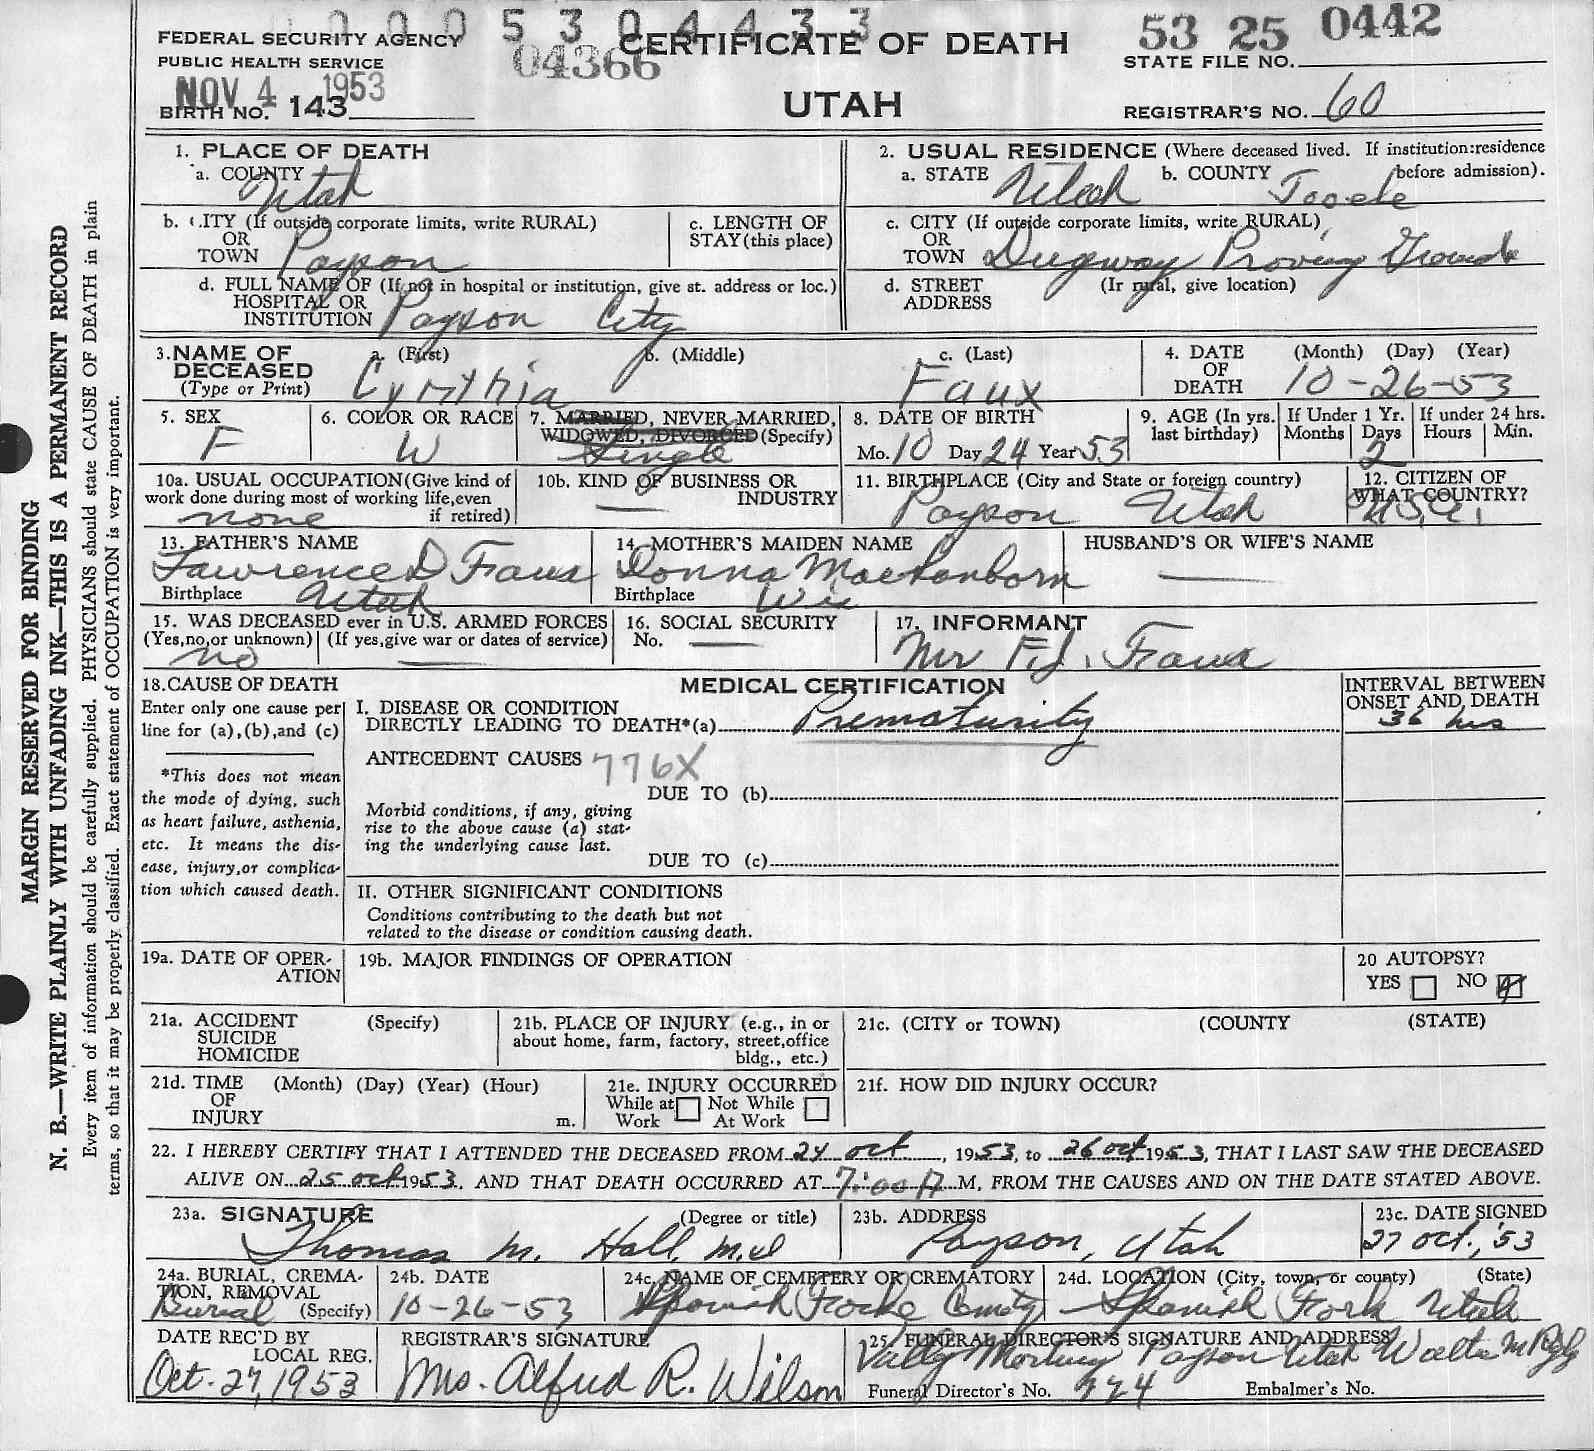 0 0 0 5 3 0 4 4 3 3
FEDERAL SECURITY AGENCY
PUBLIC HEALTH SERVICE
NOV 4 1953
BIRTH NO. 143
04366
CERTIFICATE OF DEATH
UTAH
53 25 0442
STATE FILE NO.
REGISTRAR'S NO. 60
1. PLACE OF DEATH
a. COUNTY Utah
b. CITY (If outside corporate limits, write RURAL)
OR
TOWN Payson
c. LENGTH OF
STAY (this place)
d. FULL NAME OF (If not in hospital or institution, give st. address or loc.)
HOSPITAL OR
INSTITUTION Payson City
2. USUAL RESIDENCE (Where deceased lived. If institution: residence
before admission).
a. STATE Utah b. COUNTY Tooele
c. CITY (If outside corporate limits, write RURAL)
OR
TOWN Dugway Proving Grounds
d. STREET (If rural, give location)
ADDRESS
3. NAME OF
DECEASED
(Type or Print)
a. (First) b. (Middle) c. (Last)
Cynthia Faux
4. DATE (Month) (Day) (Year)
OF
DEATH 10-26-53
5. SEX
F
6. COLOR OR RACE
W
7. MARRIED, NEVER MARRIED,
WIDOWED, DIVORCED (Specify)
Single
8. DATE OF BIRTH
Mo. 10 Day 24 Year 53
9. AGE (In yrs.
last birthday)
If Under 1 Yr.
Months Days
2
If under 24 hrs.
Hours Min.
10a. USUAL OCCUPATION (Give kind of
work done during most of working life, even
if retired)
none
10b. KIND OF BUSINESS OR
INDUSTRY
—
11. BIRTHPLACE (City and State or foreign country)
Payson Utah
12. CITIZEN OF
WHAT COUNTRY?
U.S.A.
13. FATHER'S NAME
Lawrence D Faux
Birthplace Utah
14. MOTHER'S MAIDEN NAME
Donna
Birthplace Wis
HUSBAND'S OR WIFE'S NAME
—
15. WAS DECEASED ever in U.S. ARMED FORCES
(Yes, no, or unknown) (If yes, give war or dates of service)
no —
16. SOCIAL SECURITY
No. —
17. INFORMANT
Mr F.J. Faux
18. CAUSE OF DEATH
Enter only one cause per
line for (a), (b), and (c)
*This does not mean
the mode of dying, such
as heart failure, asthenia,
etc. It means the dis-
ease, injury, or complica-
tion which caused death.
MEDICAL CERTIFICATION
I. DISEASE OR CONDITION
DIRECTLY LEADING TO DEATH*(a) Prematurity
ANTECEDENT CAUSES 776X
DUE TO (b)
Morbid conditions, if any, giving
rise to the above cause (a) stat-
ing the underlying cause last.
DUE TO (c)
II. OTHER SIGNIFICANT CONDITIONS
Conditions contributing to the death but not
related to the disease or condition causing death.
INTERVAL BETWEEN
ONSET AND DEATH
36 hrs
19a. DATE OF OPER-
ATION
19b. MAJOR FINDINGS OF OPERATION
20 AUTOPSY?
YES NO
21a. ACCIDENT (Specify)
SUICIDE
HOMICIDE
21b. PLACE OF INJURY (e.g., in or
about home, farm, factory, street, office
bldg., etc.)
21c. (CITY or TOWN) (COUNTY (STATE)
21d. TIME (Month) (Day) (Year) (Hour)
OF
INJURY m.
21e. INJURY OCCURRED
While at Not While
Work At Work
21f. HOW DID INJURY OCCUR?
22. I HEREBY CERTIFY THAT I ATTENDED THE DECEASED FROM 24 oct, 1953, to 26 oct 1953, THAT I LAST SAW THE DECEASED
ALIVE ON 25 oct 1953, AND THAT DEATH OCCURRED AT 7:00 A M, FROM THE CAUSES AND ON THE DATE STATED ABOVE.
23a. SIGNATURE (Degree or title)
Thomas M. Hall M.d
23b. ADDRESS
Payson, Utah
23c. DATE SIGNED
27 Oct., '53
24a. BURIAL, CREMA-
TION, REMOVAL
Burial (Specify)
24b. DATE
10-26-53
24c. NAME OF CEMETERY OR CREMATORY
Spanish Forke
24d. LOCATION (City, town, or county) (State)
Spanish Fork Utah
DATE REC'D BY
LOCAL REG.
Oct. 27, 1953
REGISTRAR'S SIGNATURE
Mrs. Alfred R. Wilson
25. FUNERAL DIRECTOR'S SIGNATURE AND ADDRESS
Vally Mortuary Payson Utah
Funeral Director's No. 224 Embalmer's No.
MARGIN RESERVED FOR BINDING
N. B.—WRITE PLAINLY WITH UNFADING INK—THIS IS A PERMANENT RECORD
Every item of information should be carefully supplied. PHYSICIANS should state CAUSE OF DEATH in plain
terms, so that it may be properly classified. Exact statement of OCCUPATION is very important.